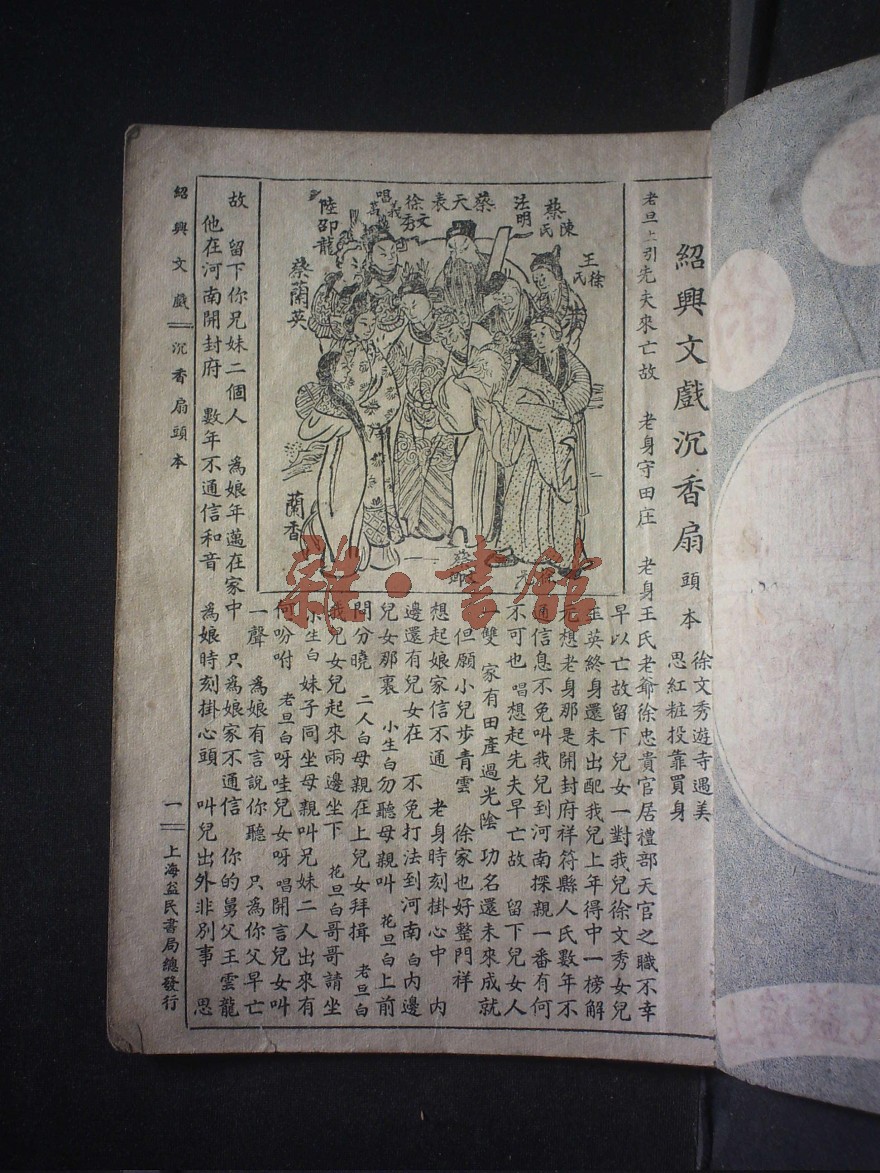 紹興文戲沉香扇頭本
徐文秀遊寺遇美
思紅粧投靠買身
老旦上引先夫來亡故 老身守田庄 老身王氏老爺徐忠貴官居禮部天官之職不幸
早以亡故留下兒女一對我兒徐文秀女兒
玉英終身還未出配我兒上年得中一榜解
元想老身那是開封府祥符縣人氏數年不
通信息不免叫我兒到河南探親一番有何
不可也 唱想起先夫早亡故 留下兒女人
一雙 家有田產過光陰 功名還未來成就
但願小兒步青雲 徐家也好整門祥
想起娘家信不通 老身時刻掛心中 內
邊還有兒女在 不免打法到河南 白內邊
兒女那裏 小生白勿聽母親叫 花旦白上前
問分曉 二人白母親在上兒女拜揖 老旦白
我兒女兒起來兩邊坐下 花旦白哥哥請坐
小生白妹子同坐母親叫兄妹二人出來有
何吩咐 老旦白呀哇兒女呀 唱開言兒女叫
一聲 為娘有言說你聽 只為你父早亡
故 留下你兄妹二個人 為娘年邁在家中 只為娘家不通信 你的舅父王雲龍
他在河南開封府 數年不通信和音 為娘時刻掛心頭 叫兒出外非別事 思
王徐氏
蔡陳氏
法明
蔡天表
徐文秀
唱篙義
陸邵龍
蔡蘭英
蘭香
紹興文戲 沉香扇頭本
一
上海益民書局總發行
雜·書館